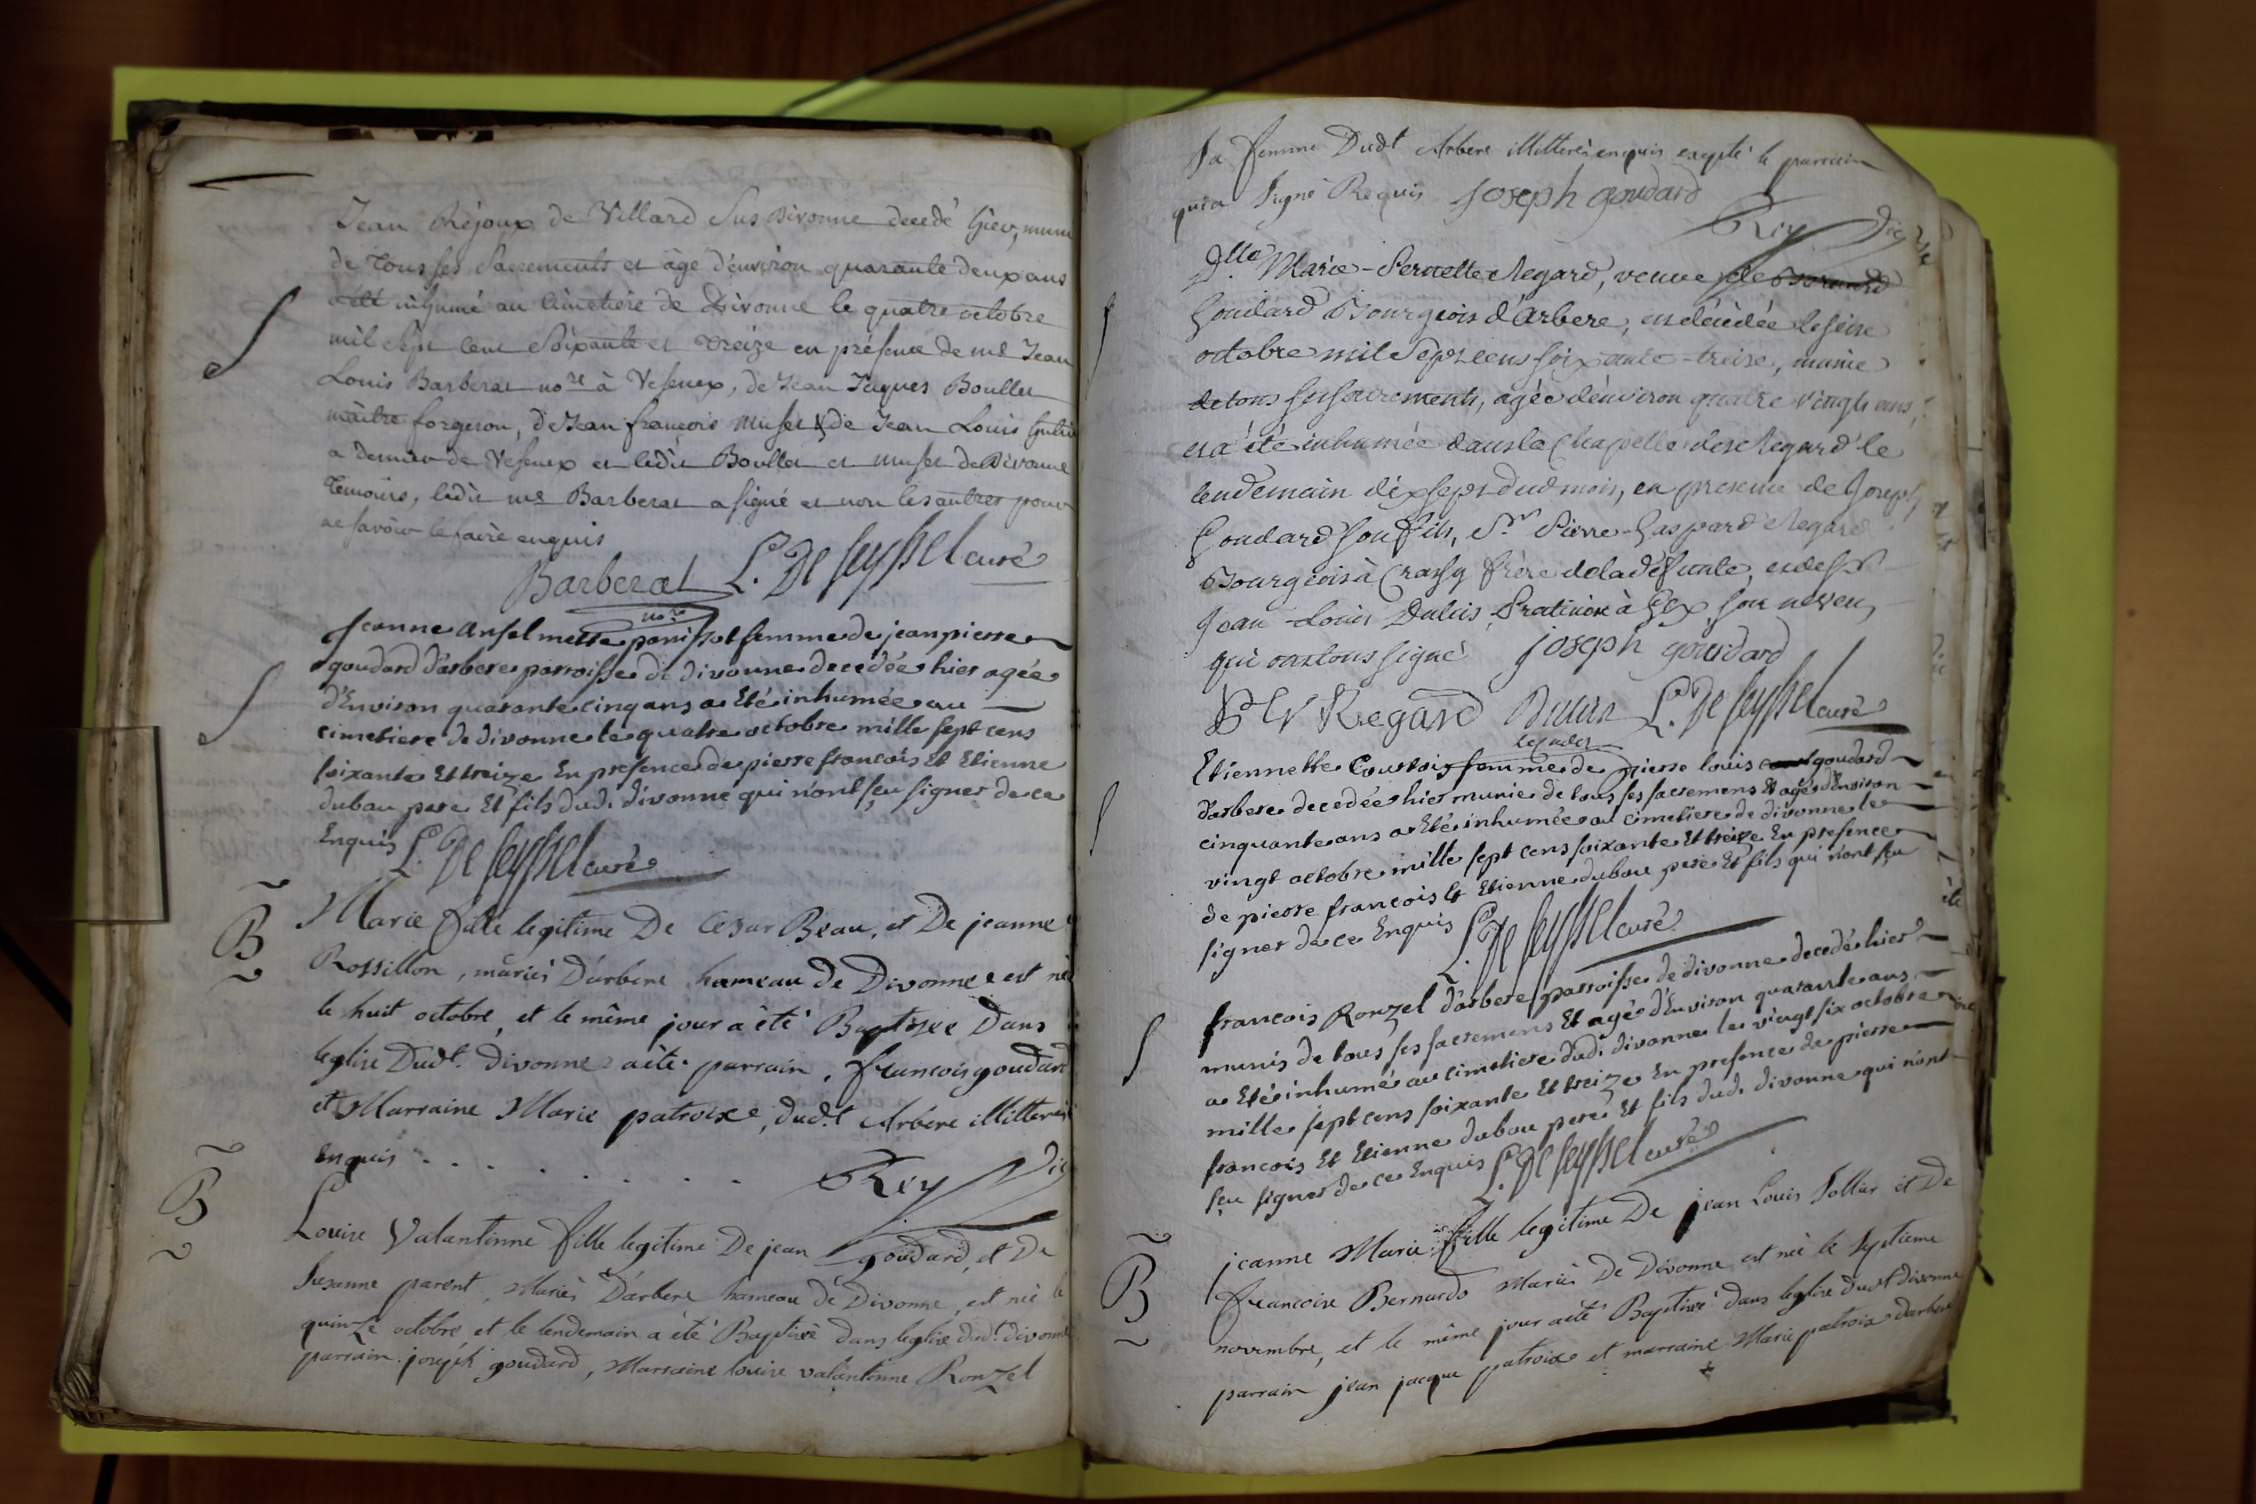 Jean Réjoux de Villard Sus Divonne decedé hier, muni
de Tous ses Sacrements et âgé d'environ quarante deux ans
a été inhumé au Cimetière de Divonne le quatre octobre
mil Sept Cent Soixante et treize en présence de me Jean
Louis Barberat nore à Vesenex, de Jean Jaques Boullet
maître forgeron, de Jean françois muset & de Jean Louis
a dernier de Vesenex et ledit Boullet et muset de Divonne
témoins, ledit me Barberat a signé et non les autres pour
ne savoir le faire enquis
Barberat L. De Seyssel curé
nore
Jeanne Anselmette panissot femme de jean pierre
goudard d'arbere parroisse de divonne decedée hier agée
d'Environ quarante cinq ans a Eté inhumée au
cimetiere de divonne le quatre octobre mille sept cens
soixante Et treize En presence de pierre francois Et Etienne
dubau pere Et fils dud. divonne qui n'ont sçu signer de ce
Enquis L. De Seyssel curé
B
Marie fille legitime De Cesar Beau, et De jeanne
Rossillon, mariés D'arbere hameau de Divonne est née
le huit octobre, et le même jour a été Baptisée Dans
leglise Dudt. Divonne a été parrain, françois goudard
et Marraine Marie patroix, dudt Arbere illitterés
enquis . . . . . . . . Rey Vic
B
Louise Valantinne fille legitime De jean goudard, et De
Susanne parent, Mariés D'arbere hameau de Divonne, est née le
quinze octobre et le lendemain a été Baptisée dans leglise dudt. divonne
parrain joseph goudard, Marraine louise valantinne Ronzel
Sa femme Dudt Arbere illitterés enquis exepté le parrain
qui a signé Requis Joseph goudard
Rey Vic
Dlle Marie-Pernette Regard, veuve de
Goudard Bourgeois d'Arbere, est décédée le seize
octobre mil Sept cens soixante-treize, munie
de tous ses sacrements, agée d'environ quatre vingts ans,
et a été inhumée dans la Chapelle des Regard le
lendemain dix sept dud mois, en presence de Joseph
Goudard son fils, Sr. Pierre-Gaspard Regard
Bourgeois à Crassy frère de la défunte, et de Sr
Jean-Louis Praticien à Gex, son neveu,
qui ont tous signé joseph goudard
Regard L. De Seyssel curé
Etiennette Courtois femme de pierre louis goudard
d'arbere decedée hier munie de tous ses sacremens Et agée d'Environ
cinquante ans a Eté inhumée au cimetiere de divonne le
vingt octobre mille sept cens soixante Et treize En presence
de pierre francois Et Etienne dubau pere Et fils qui n'ont sçu
signer de ce Enquis L. De Seyssel curé
francois Ronzel d'arbere parroisse de divonne decedé hier
munis de tous ses sacremens Et agé d'Environ quarante ans
a Eté inhumé au cimetiere dud. divonne le vingt six octobre
mille sept cens soixante Et treize En presence de pierre
francois Et Etienne dubau pere Et fils dud. divonne qui n'ont
sçu signer de ce Enquis L. De Seyssel curé
B
jeanne Marie fille legitime De jean Louis Sollier et De
francoise Bernardo Mariés De Divonne est née le Septieme
novembre, et le même jour a été Baptisée dans leglise dudt divonne
parrain jean jacque patroix et marraine Marie patroix darbere